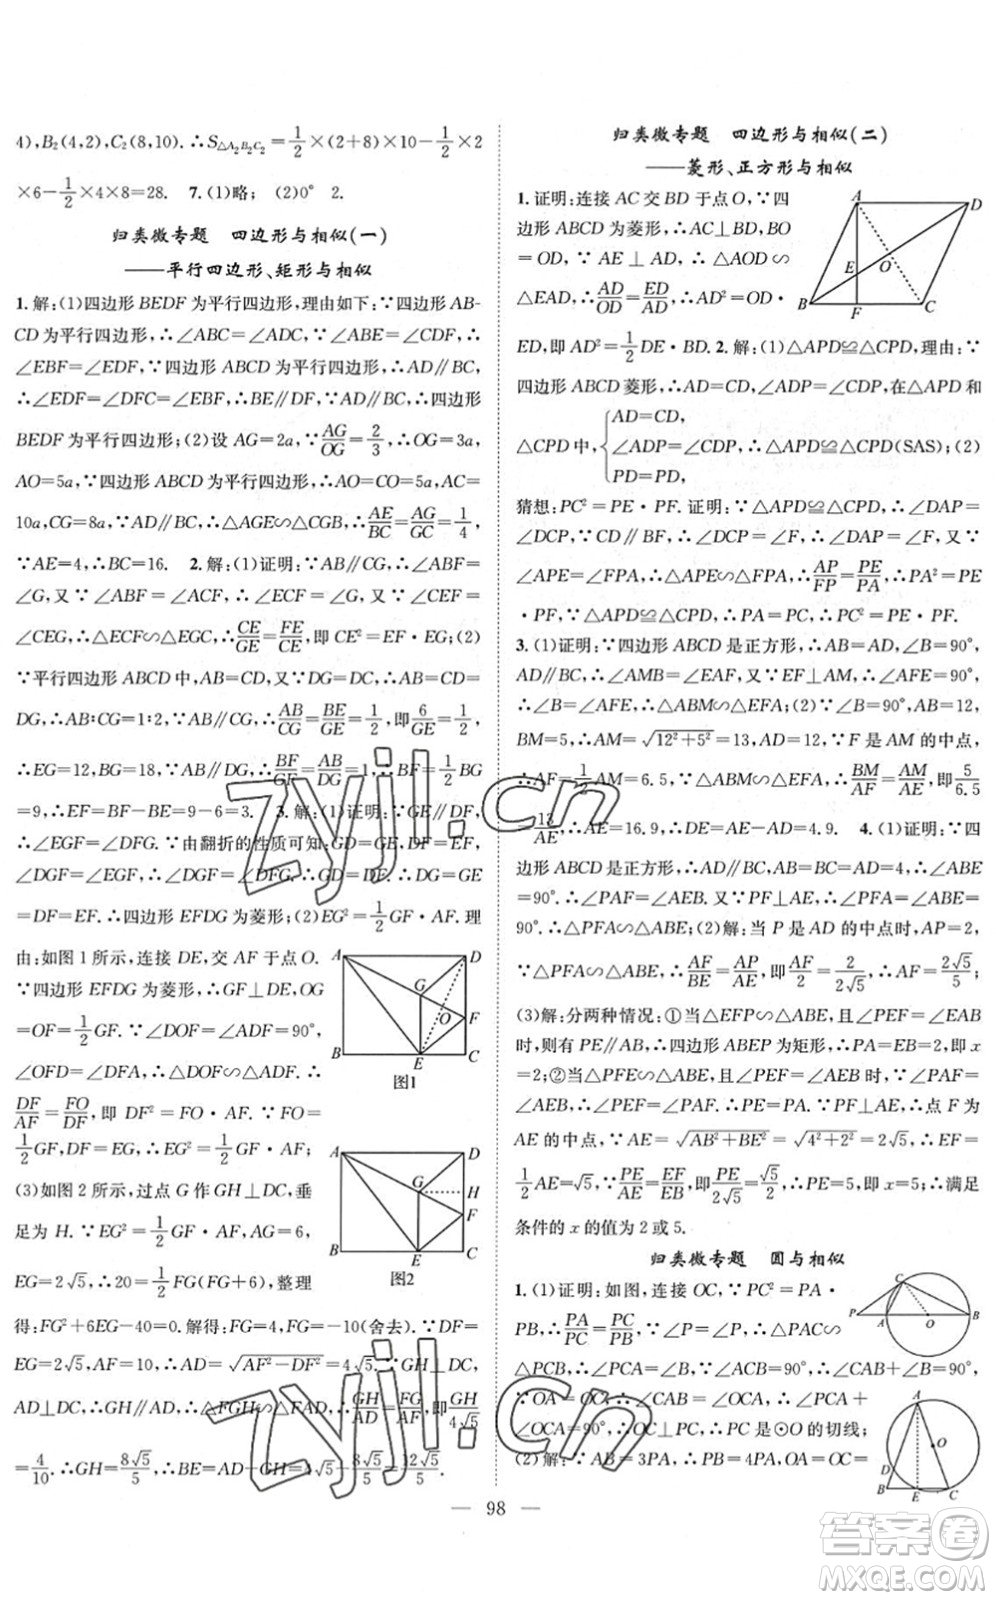 4),B₂(4,2),C₂(8,10).∴S△A₂B₂C₂=1/2×(2+8)×10-1/2×2
×6-1/2×4×8=28. 7.(1)略; (2)0° 2.
归类微专题 四边形与相似(一)
——平行四边形、矩形与相似
1.解:(1)四边形BEDF为平行四边形,理由如下:∵四边形AB-
CD为平行四边形,∴∠ABC=∠ADC,∵∠ABE=∠CDF,∴
∠EBF=∠EDF,∵四边形ABCD为平行四边形,∴AD∥BC,
∴∠EDF=∠DFC=∠EBF,∴BE∥DF,∵AD∥BC,∴四边形
BEDF为平行四边形;(2)设AG=2a,∵AG/OG=2/3,∴OG=3a,
AO=5a,∵四边形ABCD为平行四边形,∴AO=CO=5a,AC=
10a,CG=8a,∵AD∥BC,∴△AGE∽△CGB,∴AE/BC=AG/GC=1/4,
∵AE=4,∴BC=16. 2.解:(1)证明:∵AB∥CG,∴∠ABF=
∠G,又∵∠ABF=∠ACF,∴∠ECF=∠G,又∵∠CEF=
∠CEG,∴△ECF∽△EGC,∴CE/GE=FE/CE,即CE²=EF·EG;(2)
∵平行四边形ABCD中,AB=CD,又∵DG=DC,∴AB=CD=
DG,∴AB:CG=1:2,∵AB∥CG,∴AB/CG=BE/GE=1/2,即6/GE=1/2,
∴EG=12,BG=18,∵AB∥DG,∴BF/GF=AB/DG=1,∴BF=1/2BG
=9,∴EF=BF-BE=9-6=3. 3.解:(1)证明:∵GE∥DF,
∴∠EGF=∠DFG.∵由翻折的性质可知:GD=GE,DF=EF,
∠DGF=∠EGF,∴∠DGF=∠DFG.∴GD=DF.∴DG=GE
=DF=EF.∴四边形EFDG为菱形;(2)EG²=1/2GF·AF.理
由:如图1所示,连接DE,交AF于点O.
∵四边形EFDG为菱形,∴GF⊥DE,OG
=OF=1/2GF.∵∠DOF=∠ADF=90°,
∠OFD=∠DFA,∴△DOF∽△ADF.∴
DF/AF=FO/DF,即DF²=FO·AF.∵FO=
1/2GF,DF=EG,∴EG²=1/2GF·AF;
(3)如图2所示,过点G作GH⊥DC,垂
足为H.∵EG²=1/2GF·AF,AG=6,
EG=2√5,∴20=1/2FG(FG+6),整理
得:FG²+6EG-40=0.解得:FG=4,FG=-10(舍去).∵DF=
EG=2√5,AF=10,∴AD=√(AF²-DF²)=4√5.∵GH⊥DC,
AD⊥DC,∴GH∥AD,∴△FGH∽△FAD,∴GH/AD=FG/AF,即GH/4√5
=4/10.∴GH=8√5/5,∴BE=AD-GH=4√5-8√5/5=12√5/5.
A
D
G
O
F
B
E
C
图1
A
D
G
H
F
B
E
C
图2
归类微专题 四边形与相似(二)
——菱形、正方形与相似
1.证明:连接AC交BD于点O,∵四
边形ABCD为菱形,∴AC⊥BD,BO
=OD,∵AE⊥AD,∴△AOD∽
△EAD,∴AD/OD=ED/AD,∴AD²=OD·
ED,即AD²=1/2DE·BD. 2.解:(1)△APD≌△CPD,理由:∵
四边形ABCD菱形,∴AD=CD,∠ADP=∠CDP,在△APD和
△CPD中,{AD=CD,
∠ADP=∠CDP,∴△APD≌△CPD(SAS);(2)
PD=PD,
猜想:PC²=PE·PF.证明:∵△APD≌△CPD,∴∠DAP=
∠DCP,∵CD∥BF,∴∠DCP=∠F,∴∠DAP=∠F,又∵
∠APE=∠FPA,∴△APE∽△FPA,∴AP/FP=PE/PA,∴PA²=PE
·PF,∵△APD≌△CPD,∴PA=PC,∴PC²=PE·PF.
3.(1)证明:∵四边形ABCD是正方形,∴AB=AD,∠B=90°,
AD∥BC,∴∠AMB=∠EAF,又∵EF⊥AM,∴∠AFE=90°,
∴∠B=∠AFE,∴△ABM∽△EFA;(2)∵∠B=90°,AB=12,
BM=5,∴AM=√(12²+5²)=13,AD=12,∵F是AM的中点,
∴AF=1/2AM=6.5,∵△ABM∽△EFA,∴BM/AF=AM/AE,即5/6.5
=13/AE,∴AE=16.9,∴DE=AE-AD=4.9. 4.(1)证明:∵四
边形ABCD是正方形,∴AD∥BC,AB=BC=AD=4,∠ABE
=90°,∴∠PAF=∠AEB.又∵PF⊥AE,∴∠PFA=∠ABE=
90°,∴△PFA∽△ABE;(2)解:当P是AD的中点时,AP=2,
∵△PFA∽△ABE,∴AF/BE=AP/AE,即AF/2=2/2√5,∴AF=2√5/5;
(3)解:分两种情况:①当△EFP∽△ABE,且∠PEF=∠EAB
时,则有PE∥AB,∴四边形ABEP为矩形,∴PA=EB=2,即x
=2;②当△PFE∽△ABE,且∠PEF=∠AEB时,∵∠PAF=
∠AEB,∴∠PEF=∠PAF.∴PE=PA.∵PF⊥AE,∴点F为
AE的中点,∵AE=√(AB²+BE²)=√(4²+2²)=2√5,∴EF=
1/2AE=√5,∵PE/AE=EF/EB,即PE/2√5=√5/2,∴PE=5,即x=5;∴满足
条件的x的值为2或5.
A
D
E
O
B
F
C
归类微专题 圆与相似
1.(1)证明:如图,连接OC,∵PC²=PA·
PB,∴PA/PC=PC/PB,∵∠P=∠P,∴△PAC∽
△PCB,∴∠PCA=∠B,∵∠ACB=90°,∴∠CAB+∠B=
90°,∵OA=OC,∴∠CAB=∠OCA,∴∠PCA+
∠OCA=90°,∴OC⊥PC,∴PC是⊙O的切线;
(2)解:∵AB=3PA,∴PB=4PA,OA=OC=
C
P
A
O
B
A
O
D
B
E
C
98
zyjl.cn
zyjl.cn
答案圈
MXQE.COM